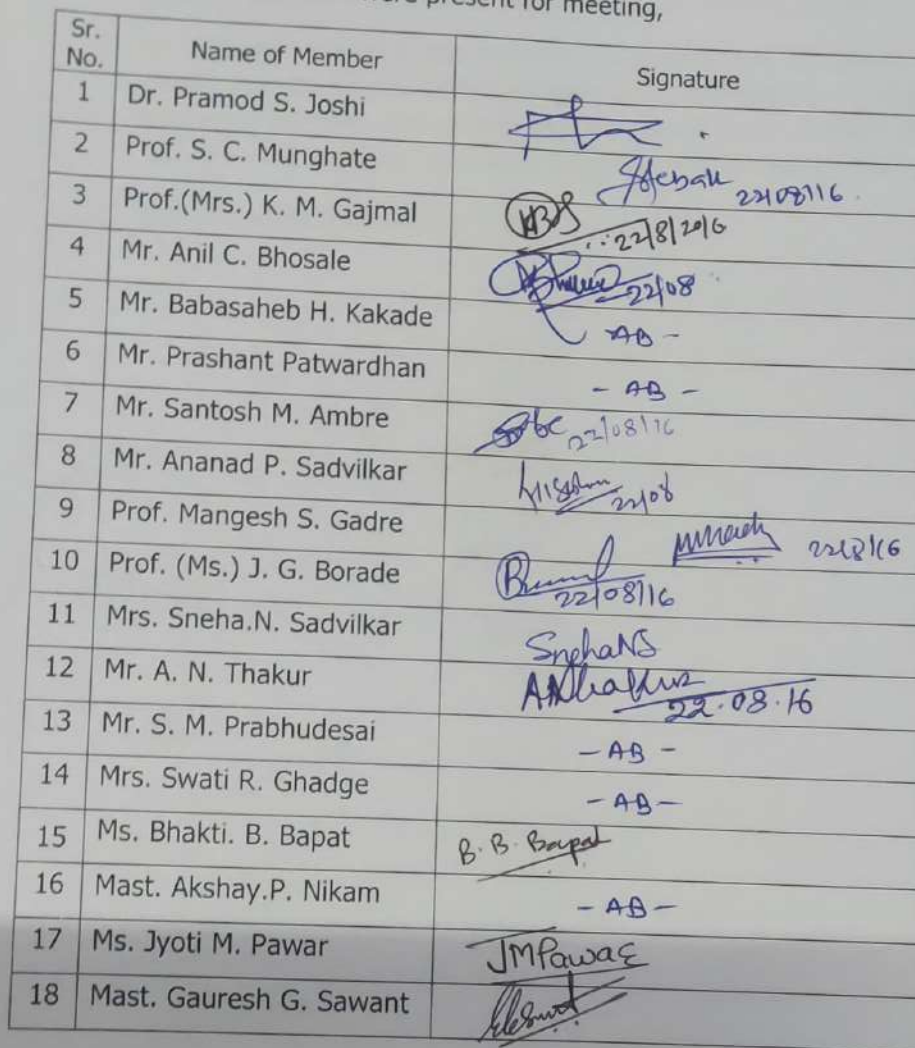 present for meeting,
Sr. No. Name of Member Signature
1 Dr. Pramod S. Joshi
2 Prof. S. C. Munghate 22/08/16
3 Prof.(Mrs.) K. M. Gajmal 22/8/2016
4 Mr. Anil C. Bhosale 22/08
5 Mr. Babasaheb H. Kakade AB -
6 Mr. Prashant Patwardhan - AB -
7 Mr. Santosh M. Ambre 22/08/16
8 Mr. Ananad P. Sadvilkar 22/08
9 Prof. Mangesh S. Gadre 22/8/16
10 Prof. (Ms.) J. G. Borade 22/08/16
11 Mrs. Sneha.N. Sadvilkar SnehaNS
12 Mr. A. N. Thakur ANThakur 22.08.16
13 Mr. S. M. Prabhudesai - AB -
14 Mrs. Swati R. Ghadge - AB -
15 Ms. Bhakti. B. Bapat B. B. Bapat
16 Mast. Akshay.P. Nikam - AB -
17 Ms. Jyoti M. Pawar JMPawar
18 Mast. Gauresh G. Sawant